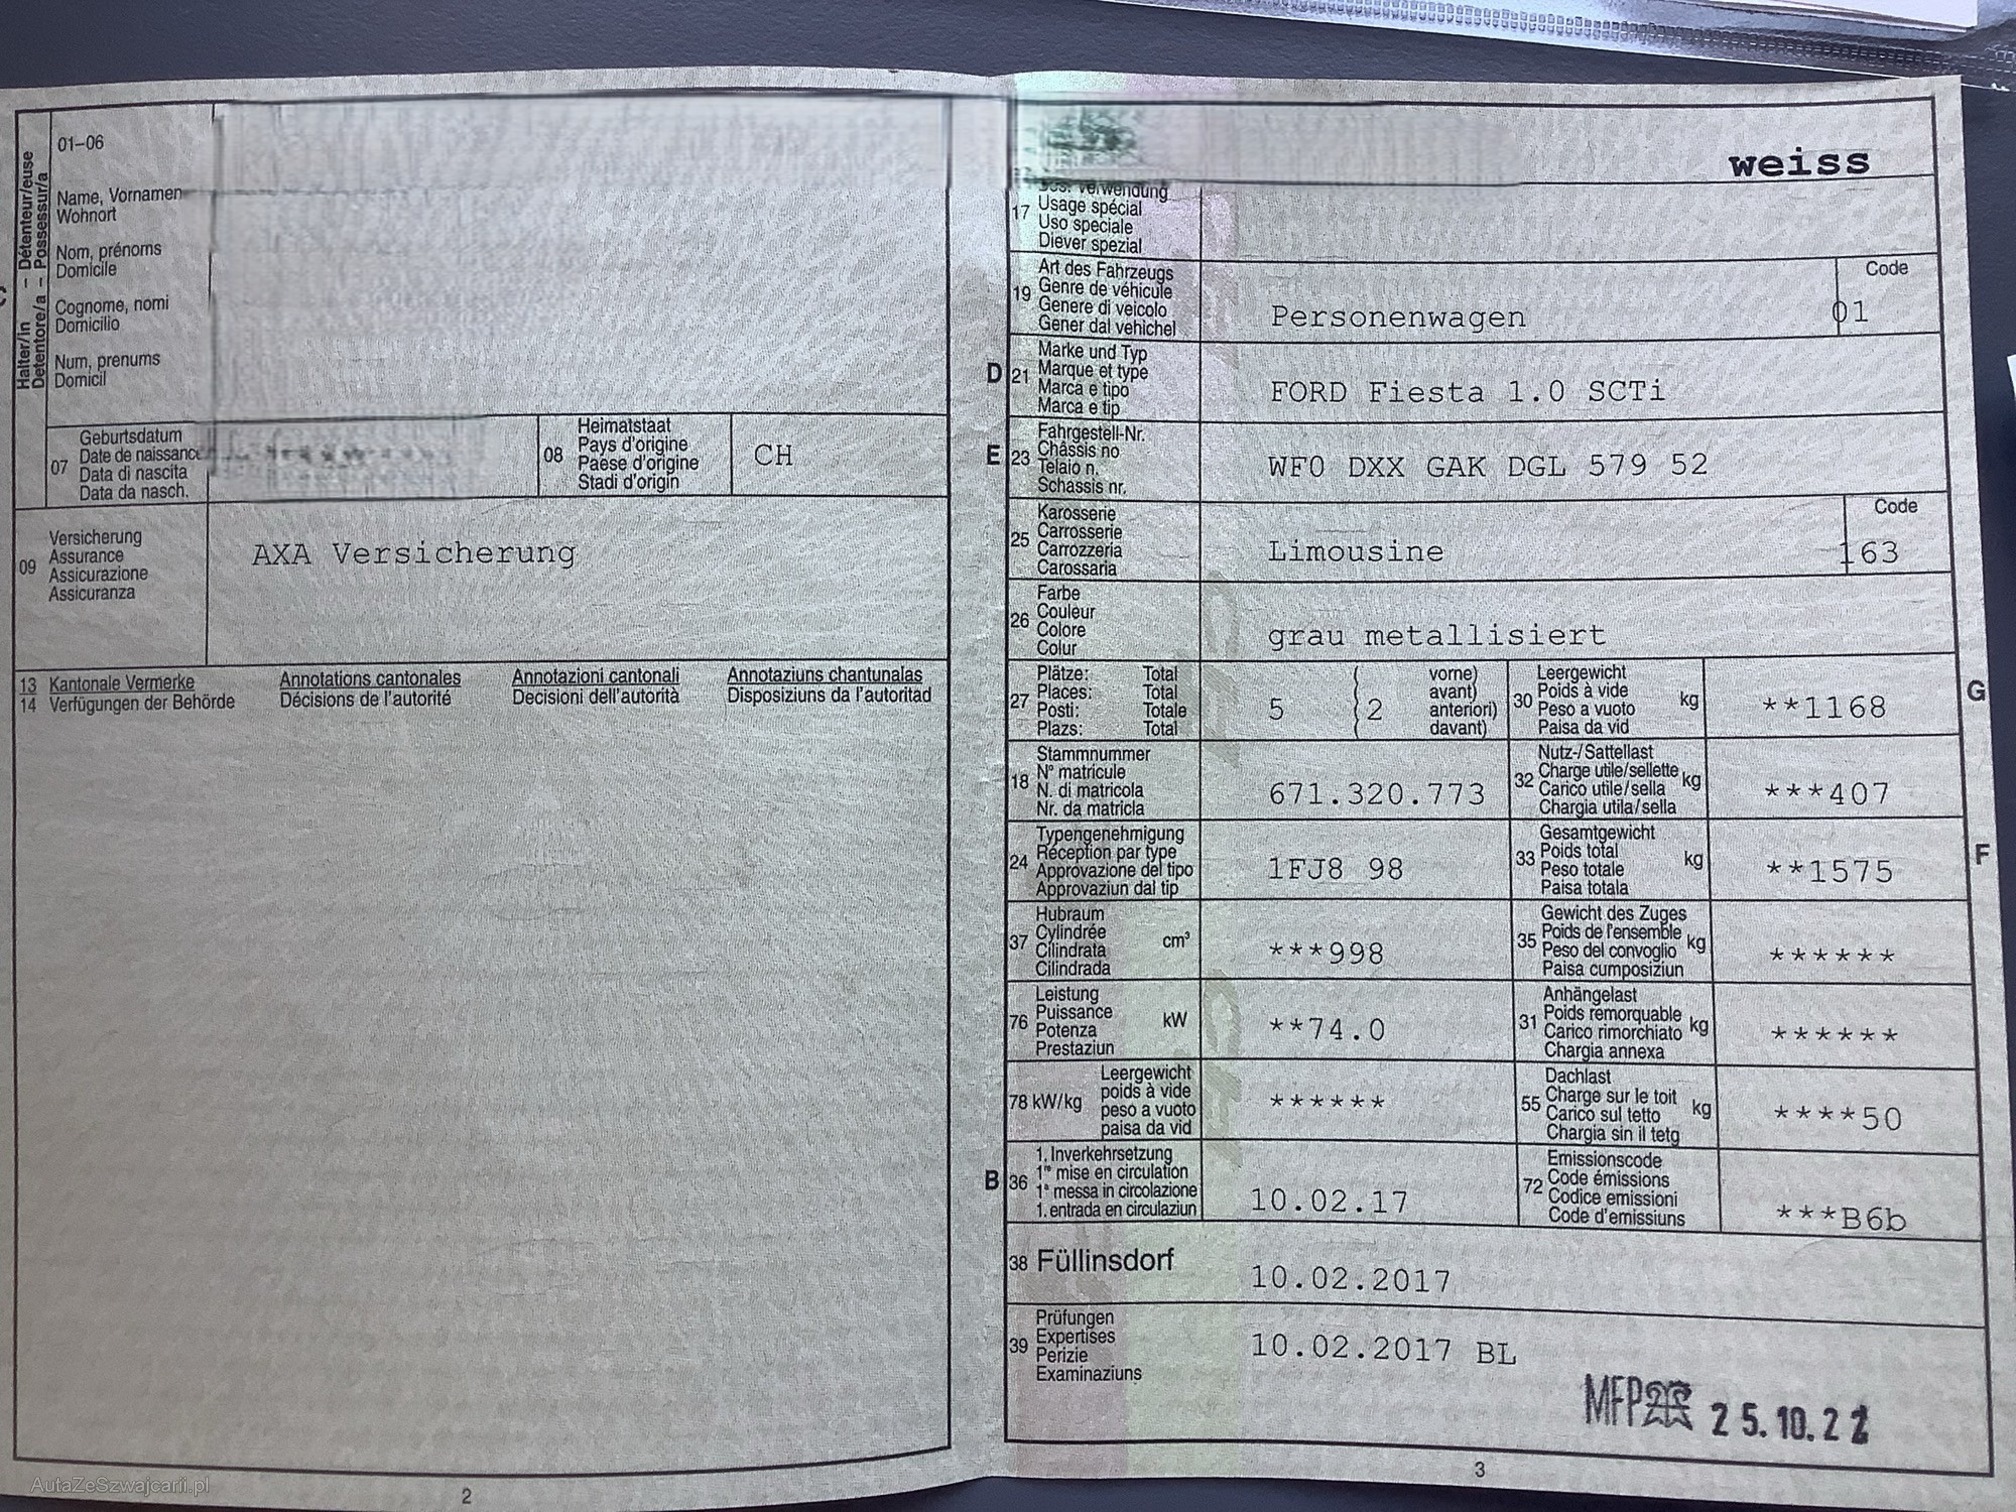 Halter/in – Détenteur/euse
Detentore/a – Possessur/a
01–06
Name, Vornamen
Wohnort
Nom, prénoms
Domicile
Cognome, nomi
Domicilio
Num, prenums
Domicil
07 Geburtsdatum
Date de naissance
Data di nascita
Data da nasch.
08 Heimatstaat
Pays d'origine
Paese d'origine
Stadi d'origin
CH
09 Versicherung
Assurance
Assicurazione
Assicuranza
AXA Versicherung
13 Kantonale Vermerke Annotations cantonales Annotazioni cantonali Annotaziuns chantunalas
14 Verfügungen der Behörde Décisions de l'autorité Decisioni dell'autorità Disposiziuns da l'autoritad
AutaZeSzwajcarii.pl
2
weiss
17 Bes. Verwendung
Usage spécial
Uso speciale
Diever spezial
19 Art des Fahrzeugs
Genre de véhicule
Genere di veicolo
Gener dal vehichel
Personenwagen
Code
01
D 21 Marke und Typ
Marque et type
Marca e tipo
Marca e tip
FORD Fiesta 1.0 SCTi
E 23 Fahrgestell-Nr.
Châssis no
Telaio n.
Schassis nr.
WF0 DXX GAK DGL 579 52
25 Karosserie
Carrosserie
Carrozzeria
Carossaria
Limousine
Code
163
26 Farbe
Couleur
Colore
Colur
grau metallisiert
27 Plätze: Total
Places: Total
Posti: Totale
Plazs: Total
5 2
vorne)
avant)
anteriori)
davant)
30 Leergewicht
Poids à vide
Peso a vuoto
Paisa da vid
kg
**1168
G
18 Stammnummer
N° matricule
N. di matricola
Nr. da matricla
671.320.773
32 Nutz-/Sattellast
Charge utile/sellette
Carico utile/sella
Chargia utila/sella
kg
***407
24 Typengenehmigung
Réception par type
Approvazione del tipo
Approvaziun dal tip
1FJ8 98
33 Gesamtgewicht
Poids total
Peso totale
Paisa totala
kg
**1575
F
37 Hubraum
Cylindrée
Cilindrata
Cilindrada
cm³
***998
35 Gewicht des Zuges
Poids de l'ensemble
Peso del convoglio
Paisa cumposiziun
kg
******
76 Leistung
Puissance
Potenza
Prestaziun
kW
**74.0
31 Anhängelast
Poids remorquable
Carico rimorchiato
Chargia annexa
kg
******
78 kW/kg
Leergewicht
poids à vide
peso a vuoto
paisa da vid
******
55 Dachlast
Charge sur le toit
Carico sul tetto
Chargia sin il tetg
kg
****50
B 36 1. Inverkehrsetzung
1re mise en circulation
1a messa in circolazione
1. entrada en circulaziun
10.02.17
72 Emissionscode
Code émissions
Codice emissioni
Code d'emissiuns
***B6b
38 Füllinsdorf
10.02.2017
39 Prüfungen
Expertises
Perizie
Examinaziuns
10.02.2017 BL
MFP 25.10.22
3